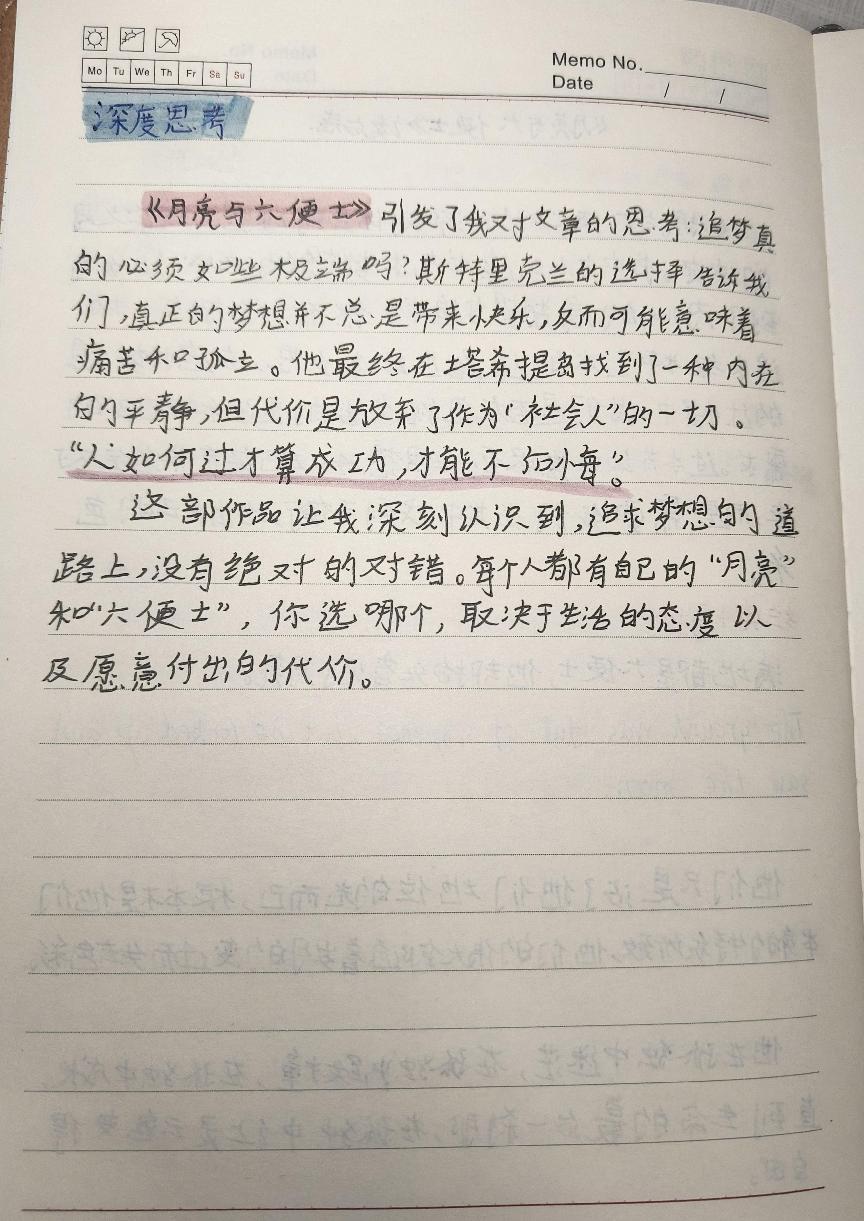 Memo No.
Mo Tu We Th Fr Sa Su
Date / /
深度思考
《月亮与六便士》引发了我对文章的思考:追梦真
的必须如此极端吗?斯特里克兰的选择告诉我
们,真正的梦想并不总是带来快乐,反而可能意味着
痛苦和孤立。他最终在塔希提岛找到了一种内在
的平静,但代价是放弃了作为“社会人”的一切。
“人如何过才算成功,才能不后悔”。
这部作品让我深刻认识到,追求梦想的道
路上,没有绝对的对错。每个人都有自己的“月亮”
和“六便士”,你选哪个,取决于生活的态度以
及愿意付出的代价。